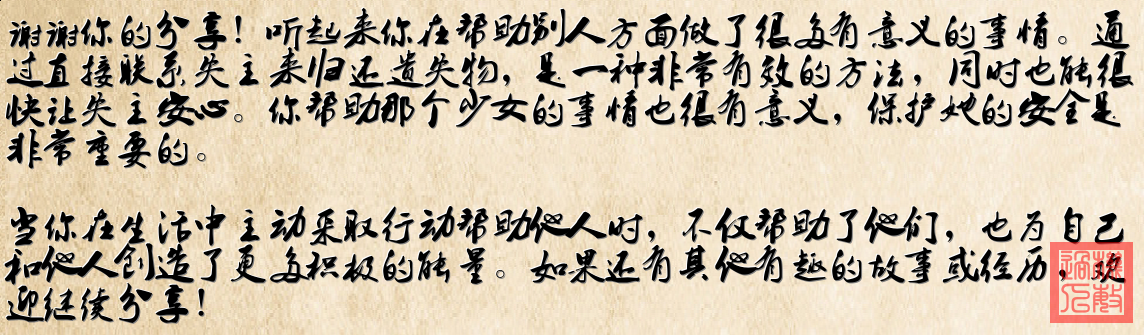 谢谢你的分享！听起来你在帮助别人方面做了很多有意义的事情。通
过直接联系失主来归还遗失物，是一种非常有效的方法，同时也能很
快让失主安心。你帮助那个少女的事情也很有意义，保护她的安全是
非常重要的。
当你在生活中主动采取行动帮助他人时，不仅帮助了他们，也为自己
和他人创造了更多积极的能量。如果还有其他有趣的故事或经历，欢
迎继续分享！